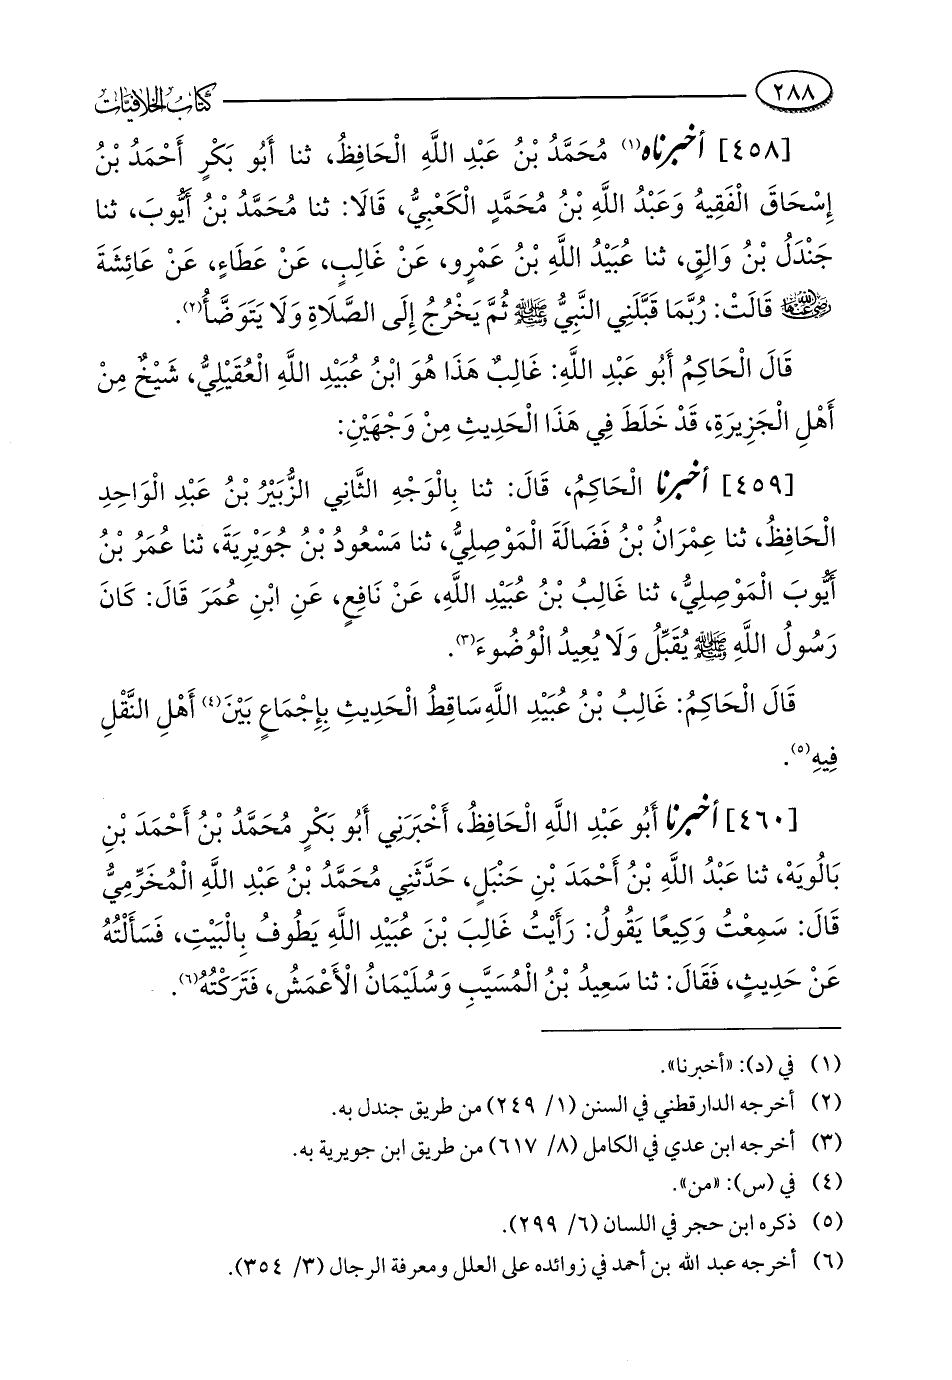 ٢٨٨ كتاب الخلافيات
[٤٥٨] أخبرناه(١) مُحَمَّدُ بْنُ عَبْدِ اللَّهِ الْحَافِظُ، ثنا أَبُو بَكْرٍ أَحْمَدُ بْنُ
إِسْحَاقَ الْفَقِيهُ وَعَبْدُ اللَّهِ بْنُ مُحَمَّدٍ الْكَعْبِيُّ، قَالَا: ثنا مُحَمَّدُ بْنُ أَيُّوبَ، ثنا
جَنْدَلُ بْنُ وَالِقٍ، ثنا عُبَيْدُ اللَّهِ بْنُ عَمْرٍو، عَنْ غَالِبٍ، عَنْ عَطَاءٍ، عَنْ عَائِشَةَ
رضي الله عنها قَالَتْ: رُبَّمَا قَبَّلَنِي النَّبِيُّ ﷺ ثُمَّ يَخْرُجُ إِلَى الصَّلَاةِ وَلَا يَتَوَضَّأُ(٢).
قَالَ الْحَاكِمُ أَبُو عَبْدِ اللَّهِ: غَالِبٌ هَذَا هُوَ ابْنُ عُبَيْدِ اللَّهِ الْعُقَيْلِيُّ، شَيْخٌ مِنْ
أَهْلِ الْجَزِيرَةِ، قَدْ خَلَطَ فِي هَذَا الْحَدِيثِ مِنْ وَجْهَيْنِ:
[٤٥٩] أخبرنا الْحَاكِمُ، قَالَ: ثنا بِالْوَجْهِ الثَّانِي الزُّبَيْرُ بْنُ عَبْدِ الْوَاحِدِ
الْحَافِظُ، ثنا عِمْرَانُ بْنُ فَضَالَةَ الْمَوْصِلِيُّ، ثنا مَسْعُودُ بْنُ جُوَيْرِيَةَ، ثنا عُمَرُ بْنُ
أَيُّوبَ الْمَوْصِلِيُّ، ثنا غَالِبُ بْنُ عُبَيْدِ اللَّهِ، عَنْ نَافِعٍ، عَنِ ابْنِ عُمَرَ قَالَ: كَانَ
رَسُولُ اللَّهِ ﷺ يُقَبِّلُ وَلَا يُعِيدُ الْوُضُوءَ(٣).
قَالَ الْحَاكِمُ: غَالِبُ بْنُ عُبَيْدِ اللَّهِ سَاقِطُ الْحَدِيثِ بِإِجْمَاعٍ بَيْنَ(٤) أَهْلِ النَّقْلِ
فِيهِ(٥).
[٤٦٠] أخبرنا أَبُو عَبْدِ اللَّهِ الْحَافِظُ، أَخْبَرَنِي أَبُو بَكْرٍ مُحَمَّدُ بْنُ أَحْمَدَ بْنِ
بَالُويَهْ، ثنا عَبْدُ اللَّهِ بْنُ أَحْمَدَ بْنِ حَنْبَلٍ، حَدَّثَنِي مُحَمَّدُ بْنُ عَبْدِ اللَّهِ الْمُخَرِّمِيُّ
قَالَ: سَمِعْتُ وَكِيعًا يَقُولُ: رَأَيْتُ غَالِبَ بْنَ عُبَيْدِ اللَّهِ يَطُوفُ بِالْبَيْتِ، فَسَأَلْتُهُ
عَنْ حَدِيثٍ، فَقَالَ: ثنا سَعِيدُ بْنُ الْمُسَيَّبِ وَسُلَيْمَانُ الْأَعْمَشُ، فَتَرَكْتُهُ(٦).
(١) في (د): «أخبرنا».
(٢) أخرجه الدارقطني في السنن (١/ ٢٤٩) من طريق جندل به.
(٣) أخرجه ابن عدي في الكامل (٨/ ٦١٧) من طريق ابن جويرية به.
(٤) في (س): «من».
(٥) ذكره ابن حجر في اللسان (٦/ ٢٩٩).
(٦) أخرجه عبد الله بن أحمد في زوائده على العلل ومعرفة الرجال (٣/ ٣٥٤).